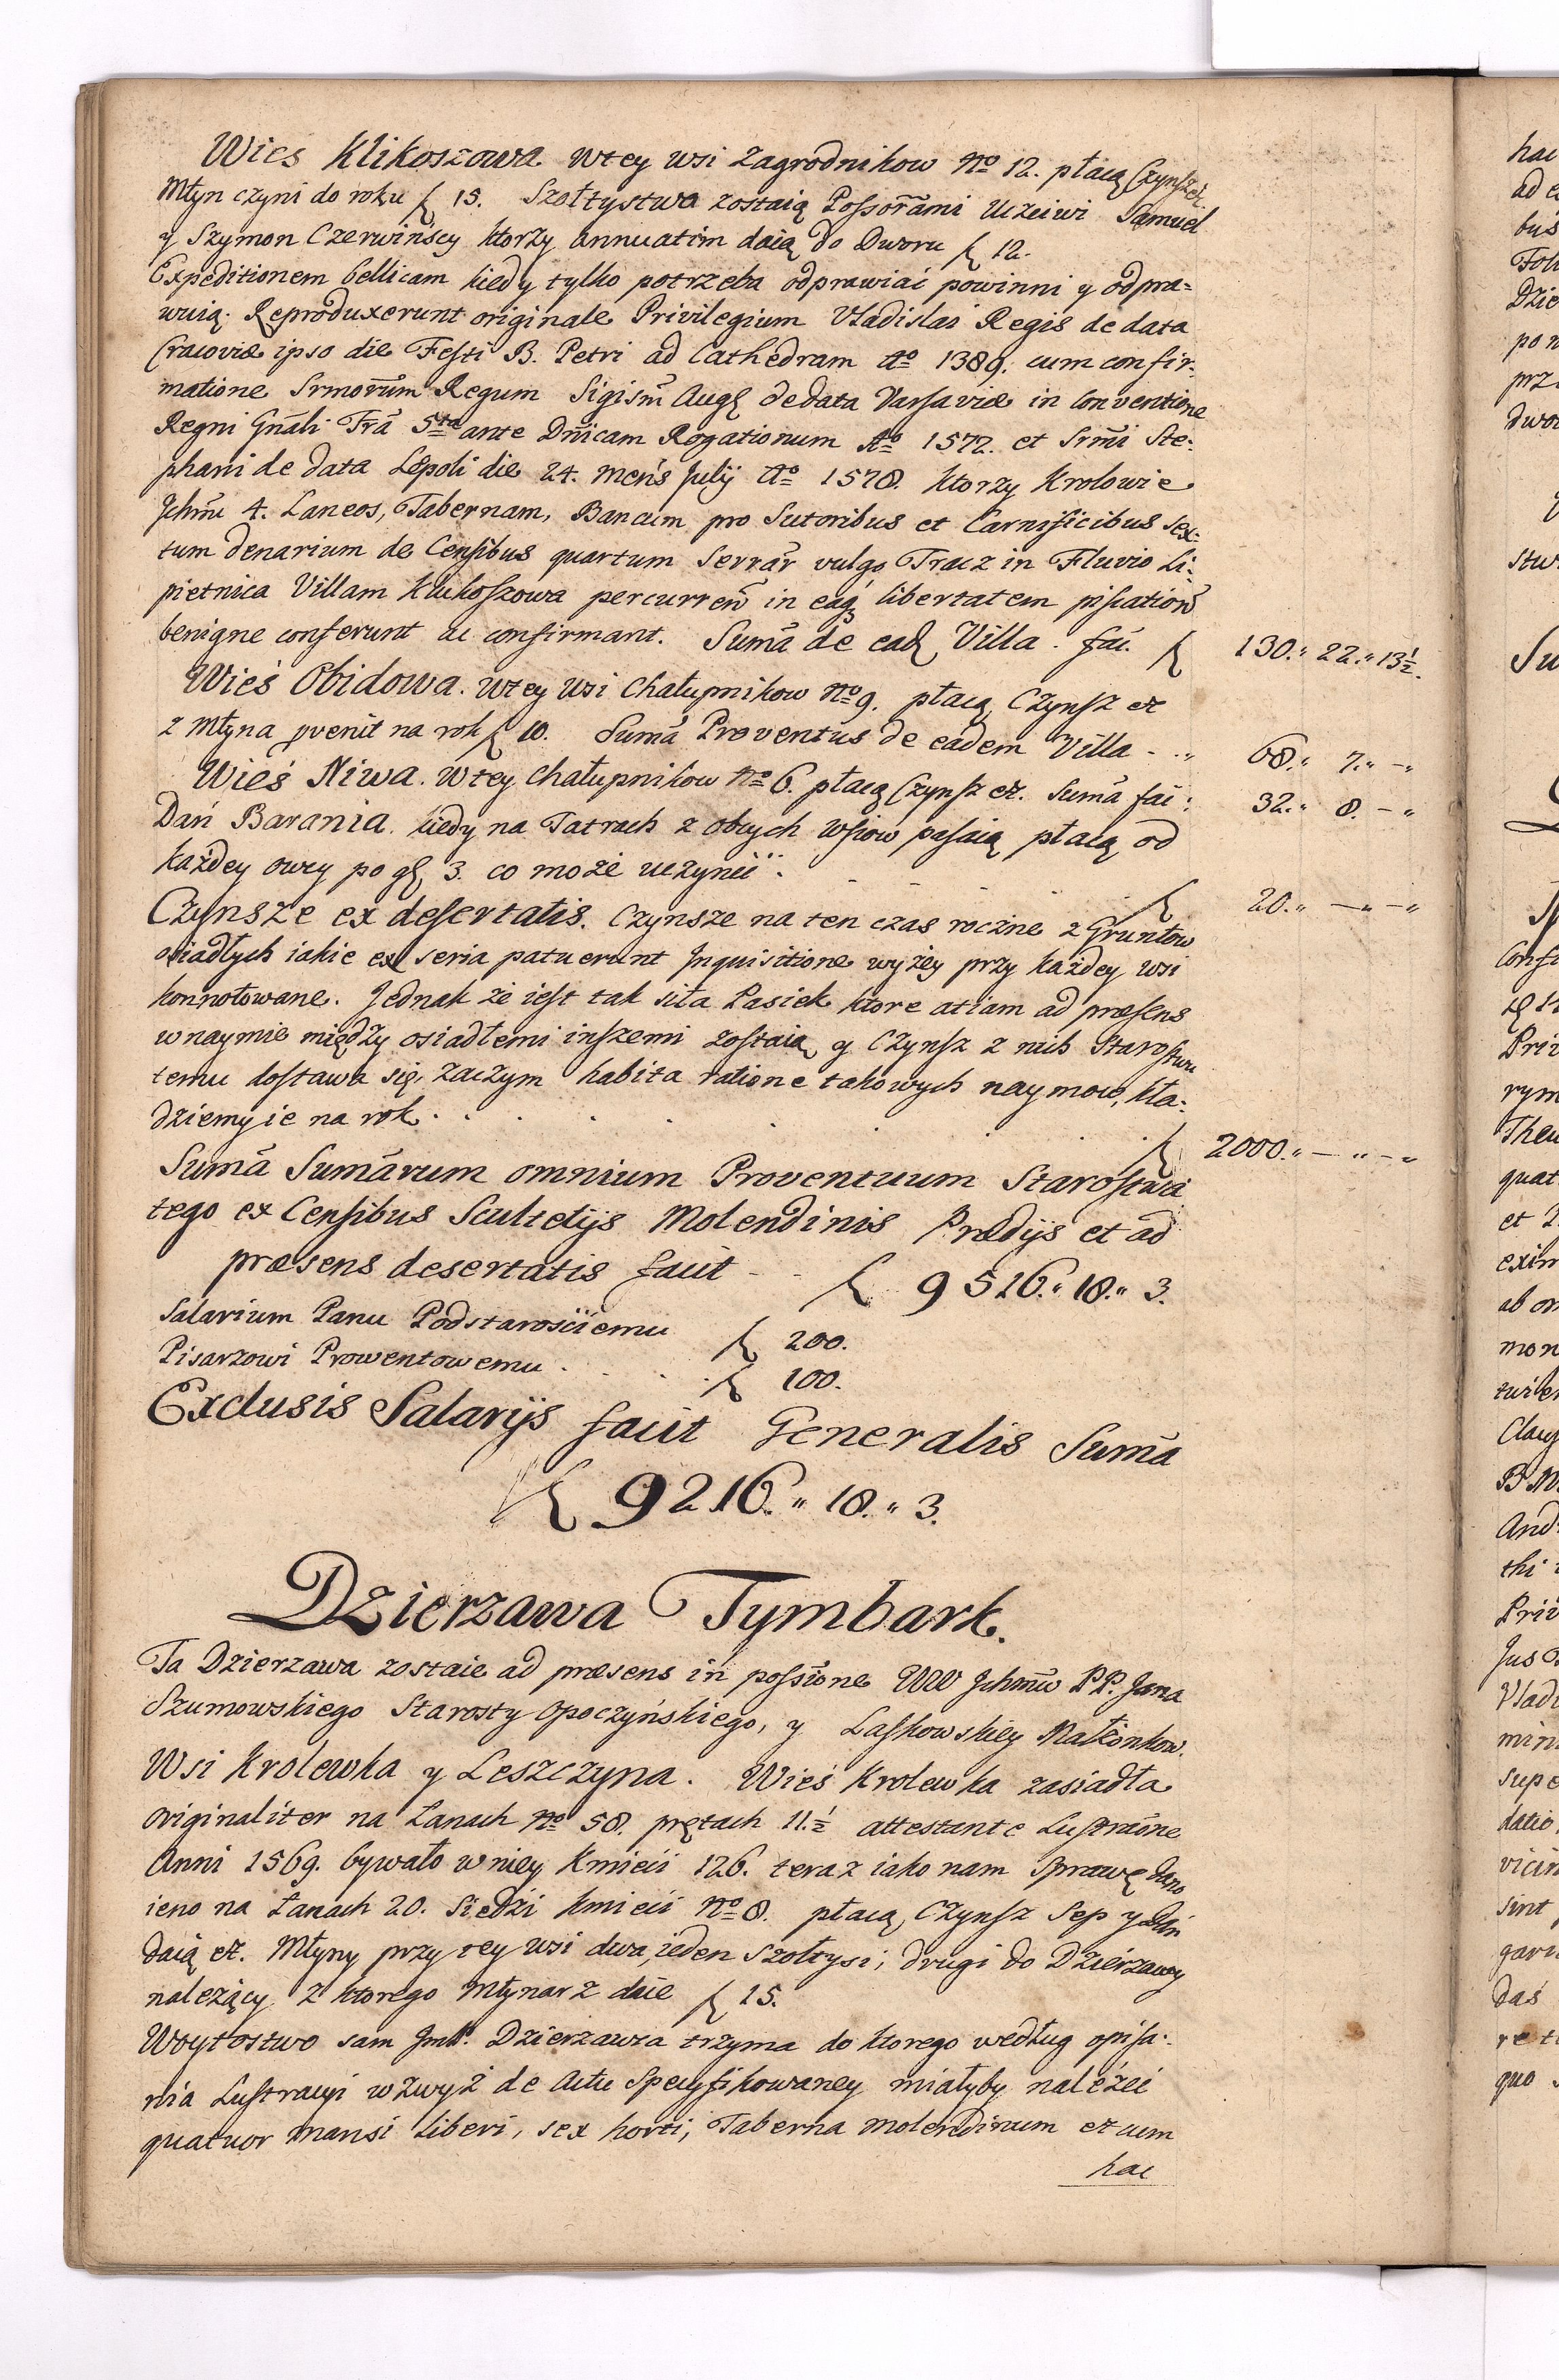 Wies Klikoszowa wtey wsi Zagrodnikow No 12. płacą Czynsz et
Młyn czyni do roku f 15. Szołtystwa zostaią Possorami Uczciwi Samuel
y Szymon Czerwińscy ktorzy annuatim daią do Dworu f 12.
Expeditionem bellicam kiedy tylko potrzeba odprawiać powinni y odpra=
wuią. Reproduxerunt originale Privilegium Vladislai Regis de data
Cracoviæ ipso die Festi B. Petri ad Cathedram Ao 1389. cum confir:
matione Srmorum Regum Sigism Aug dedata Varsaviæ in Conventione
Regni Gnali Fra 5ta ante Dnicam Rogationum Ao 1572. et Srmi Ste:
phani de data Lepoli die 24. mens July Ao 1578. ktorzy Krolowie
Jchmu 4. Laneos, Tabernam, Bancum pro Sutoribus et Carnificibus sex:
tum denarium de Censibus quartum Serrar vulgo Tracz in Fluvio Li:
pietnica Villam Klikoszowa percurren in eaq libertatem piscation
benigne conferunt ac confirmant. Suma de ead Villa . fai. f 130.„ 22.„ 13½.
Wieś Obidowa. wtey wsi Chałupnikow No 9. płacą Czynsz et
z Młyna pvenit na rok f 10. Suma Proventus de eadem Villa - „ 68.„ 7.„ -„
Wieś Niwa. wtey Chałupnikow No 6. płacą Czynsz et. Suma fai: 32.„ 8. -„
Dań Barania kiedy na Tatrach z obcych wsiow pasaią płacą od
każdey owcy po g 3. co może uczynić. - - - f 20.„ —„ -„
Czynsze ex desertatis. Czynsze na ten czas roczne z Gruntow
osiadłych iakie ex seria patuerunt Jnquisitione wyżey przy każdey wsi
konnotowane. Jednak że iest tak siła Pasiek ktore etiam ad præsens
wnaymie między osiadłemi inszemi zostaią y Czynsz z nich Starostwu
temu dostawa się, zaczym habita ratione takowych naymow, kła:
dziemy ie na rok . . . . . f 2000.„ —„ -„
Suma Sumarum omnium Proventuum Starostwa
tego ex Censibus Scultetijs Molendinis Prædijs et ad
præsens desertatis facit - - f 9516.„ 18.„ 3.
Salarium Panu Podstarościemu f 200.
Pisarzowi Prowentowemu . . . f 100.
Exclusis Salarijs facit Generalis Suma
f 9216.„ 18.„ 3.
Dzierzawa Tymbark.
Ta Dzierzawa zostaie ad præsens in possione WW Jchmu PP. Jana
Szumowskiego Starosty Opoczyńskiego, y Laskowskiey Małżonkow.
Wsi Krolewka y Leszczyna. Wieś Krolewka zasiadła
originaliter na Łanach No 58. prętach 11.½ attestante Lustraone
Anni 1569. bywało wniey Kmieci 126. teraz iako nam sprawę dano
ieno na Łanach 20. siedzi kmieci No 8. płacą Czynsz Sep y Dań
daią et. Młyny przy tey wsi dwa, ieden Szołtysi, drugi do Dzierzawy
należący z ktorego Młynarz daie f 15.
Woytostwo sam Jmp. Dzierzawca trzyma do ktorego według opisa:
nia Lustracyi wzwyż de Actu Specyfikowaney miałyby należeć
quatuor mansi liberi, sex horti, Taberna molendinum et cum
hac